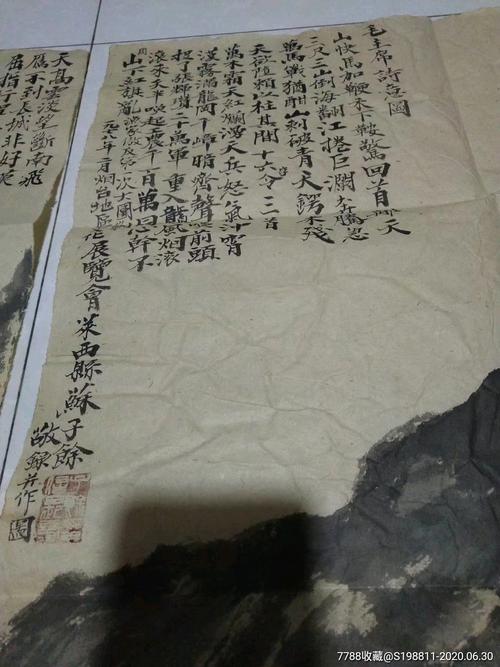 毛主席詩意圖
山快馬加鞭未下鞍驚回首離天
三尺三山倒海翻江捲巨瀾奔騰急
萬馬戰猶酣山刺破青天鍔未殘
天欲墮賴以柱其間十六令三首
萬木霜天紅爛漫天兵怒氣沖霄
漢霧滿龍岡千嶂暗齊聲喚前頭
捉了張輝瓚二萬軍重入贛風烟滾
滾來天半喚起工農千百萬同心幹不
周山下紅旗亂漁家傲反第一次大圍剿
一九七八年二月烟台地區展覽會萊西縣蘇子餘
敬錄并作圖
天高雲淡望斷南飛
雁不到長城非好漢
屈指行程
7788收藏@S198811-2020.06.30